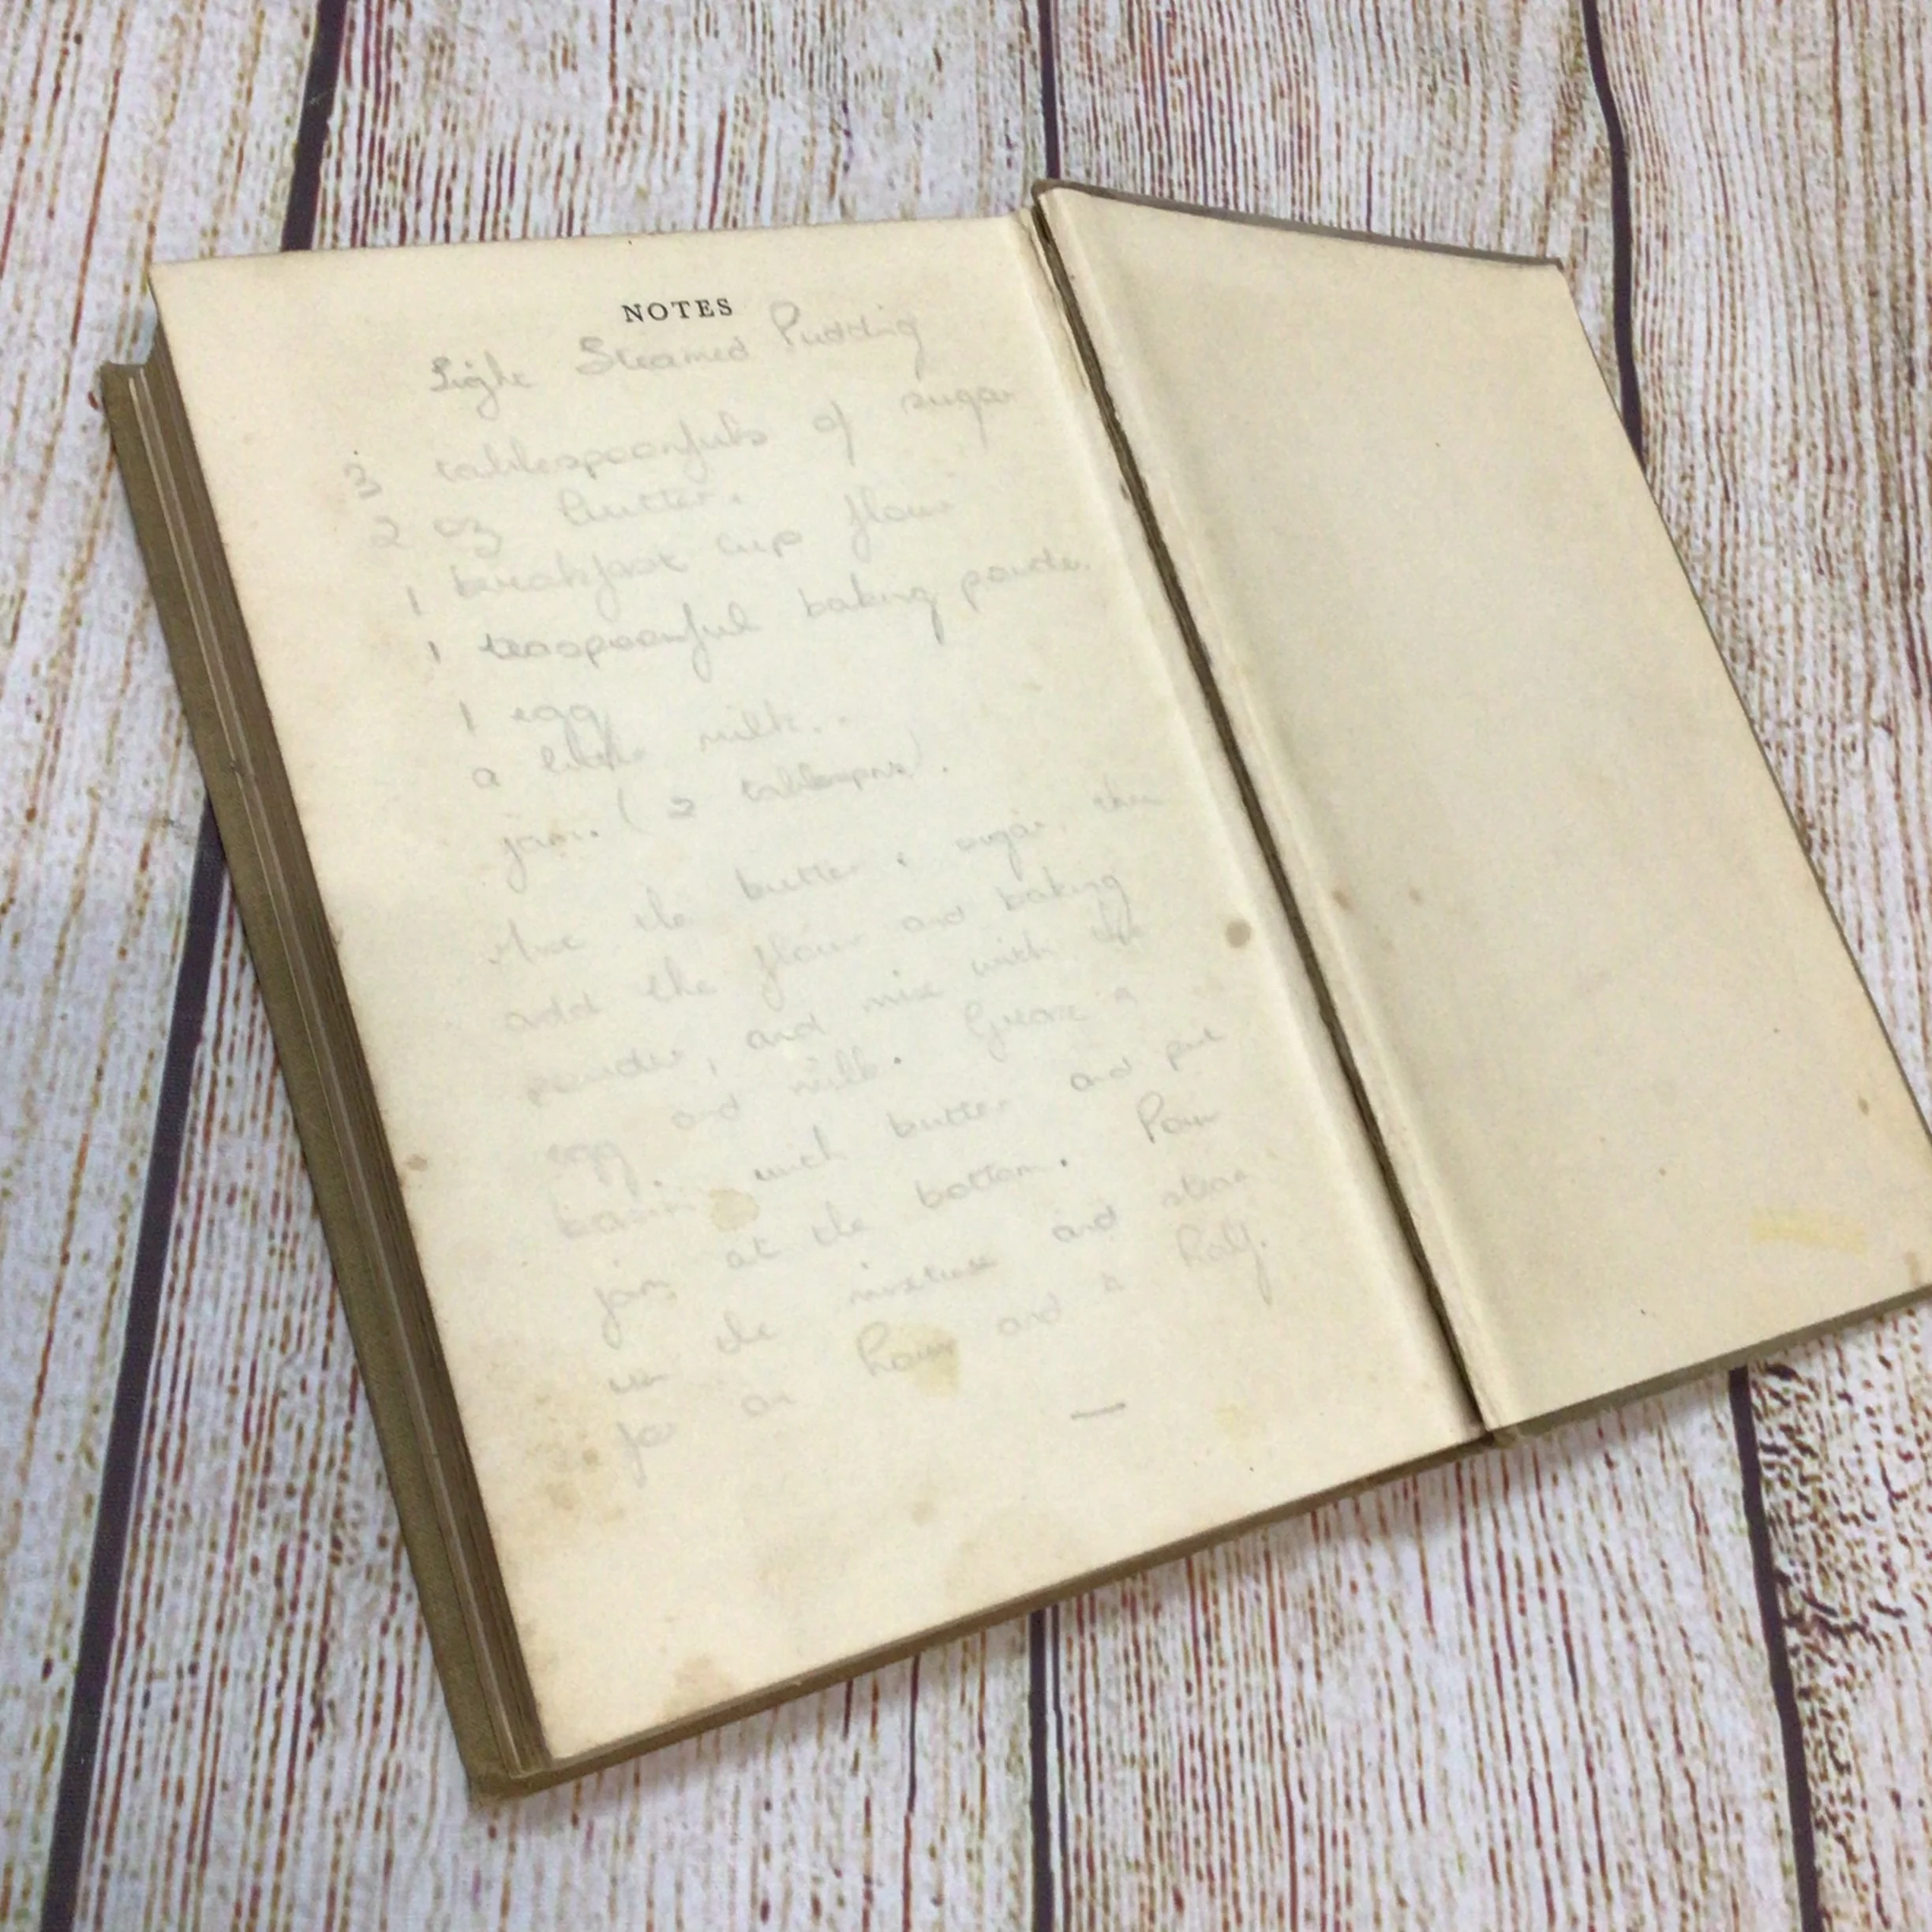 NOTES
Light Steamed Pudding
3 tablespoonfuls of sugar
2 oz butter.
1 breakfast cup flour
1 teaspoonful baking powder.
1 egg
a little milk.
jam. (2 tablespns).
Mix the butter & sugar, then
add the flour and baking
powder, and mix with the
egg and milk. Grease a
basin with butter and put
jam at the bottom. Pour
in the mixture and steam
for an hour and a half.